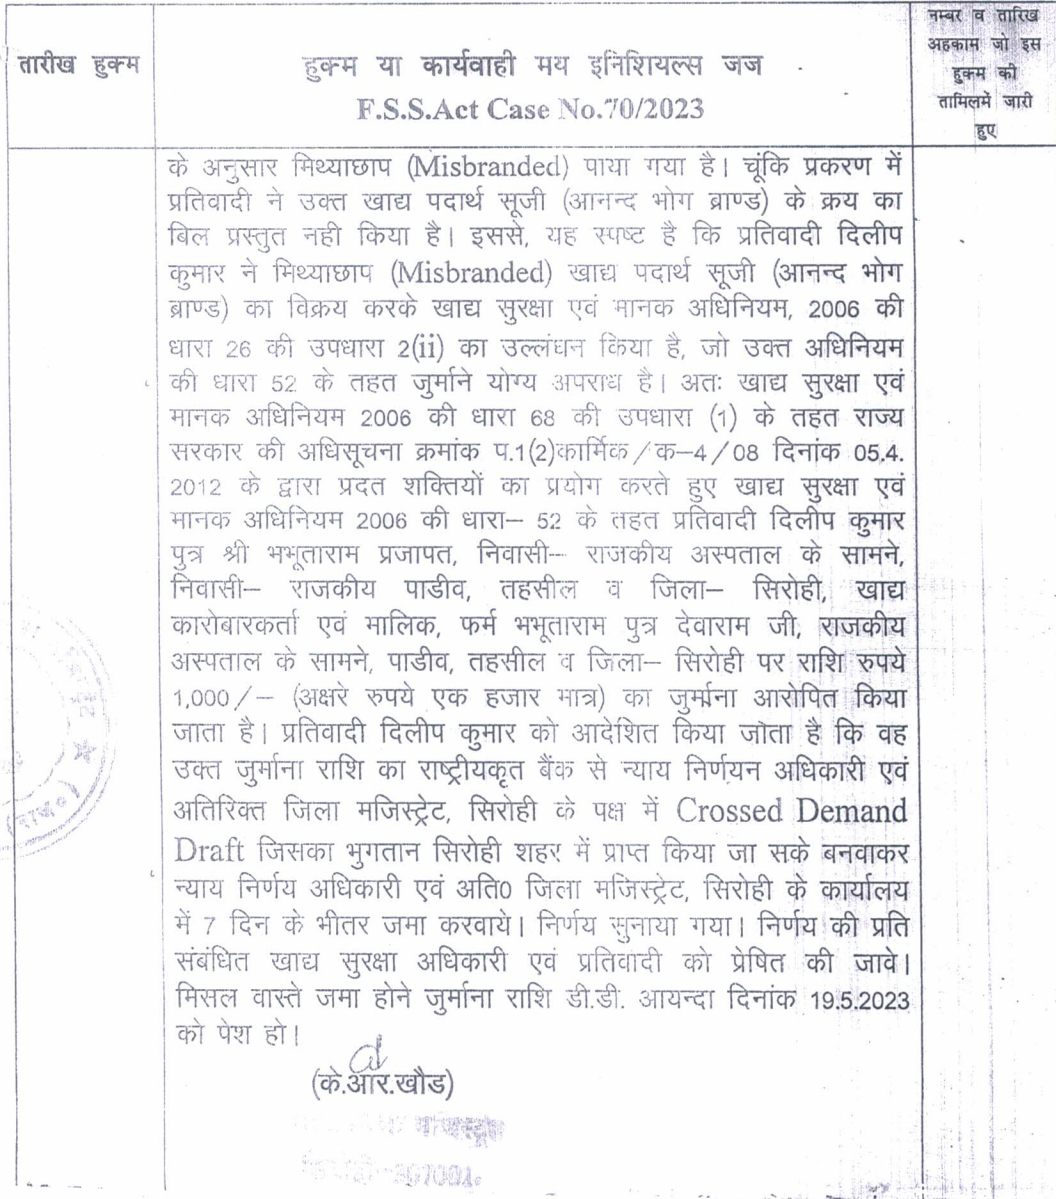 तारीख हुक्म
हुक्म या कार्यवाही मय इनिशियल्स जज
F.S.S.Act Case No.70/2023
नम्बर व तारिख
अहकाम जो इस
हुक्म की
तामिलमें जारी
हुए
के अनुसार मिथ्याछाप (Misbranded) पाया गया है। चूंकि प्रकरण में
प्रतिवादी ने उक्त खाद्य पदार्थ सूजी (आनन्द भोग ब्राण्ड) के क्रय का
बिल प्रस्तुत नही किया है। इससे, यह स्पष्ट है कि प्रतिवादी दिलीप
कुमार ने मिथ्याछाप (Misbranded) खाद्य पदार्थ सूजी (आनन्द भोग
ब्राण्ड) का विक्रय करके खाद्य सुरक्षा एवं मानक अधिनियम, 2006 की
धारा 26 की उपधारा 2(ii) का उल्लंघन किया है, जो उक्त अधिनियम
की धारा 52 के तहत जुर्माने योग्य अपराध है। अतः खाद्य सुरक्षा एवं
मानक अधिनियम 2006 की धारा 68 की उपधारा (1) के तहत राज्य
सरकार की अधिसूचना क्रमांक प.1(2)कार्मिक/क-4/08 दिनांक 05.4.
2012 के द्वारा प्रदत शक्तियों का प्रयोग करते हुए खाद्य सुरक्षा एवं
मानक अधिनियम 2006 की धारा- 52 के तहत प्रतिवादी दिलीप कुमार
पुत्र श्री भभूताराम प्रजापत, निवासी- राजकीय अस्पताल के सामने,
निवासी- राजकीय पाडीव, तहसील व जिला- सिरोही, खाद्य
कारोबारकर्ता एवं मालिक, फर्म भभूताराम पुत्र देवाराम जी, राजकीय
अस्पताल के सामने, पाडीव, तहसील व जिला- सिरोही पर राशि रुपये
1,000/- (अक्षरे रुपये एक हजार मात्र) का जुर्माना आरोपित किया
जाता है। प्रतिवादी दिलीप कुमार को आदेशित किया जाता है कि वह
उक्त जुर्माना राशि का राष्ट्रीयकृत बैंक से न्याय निर्णयन अधिकारी एवं
अतिरिक्त जिला मजिस्ट्रेट, सिरोही के पक्ष में Crossed Demand
Draft जिसका भुगतान सिरोही शहर में प्राप्त किया जा सके बनवाकर
न्याय निर्णय अधिकारी एवं अति0 जिला मजिस्ट्रेट, सिरोही के कार्यालय
में 7 दिन के भीतर जमा करवाये। निर्णय सुनाया गया। निर्णय की प्रति
संबंधित खाद्य सुरक्षा अधिकारी एवं प्रतिवादी को प्रेषित की जावे।
मिसल वास्ते जमा होने जुर्माना राशि डी.डी. आयन्दा दिनांक 19.5.2023
को पेश हो।
(के.आर.खौड)
(राज०)